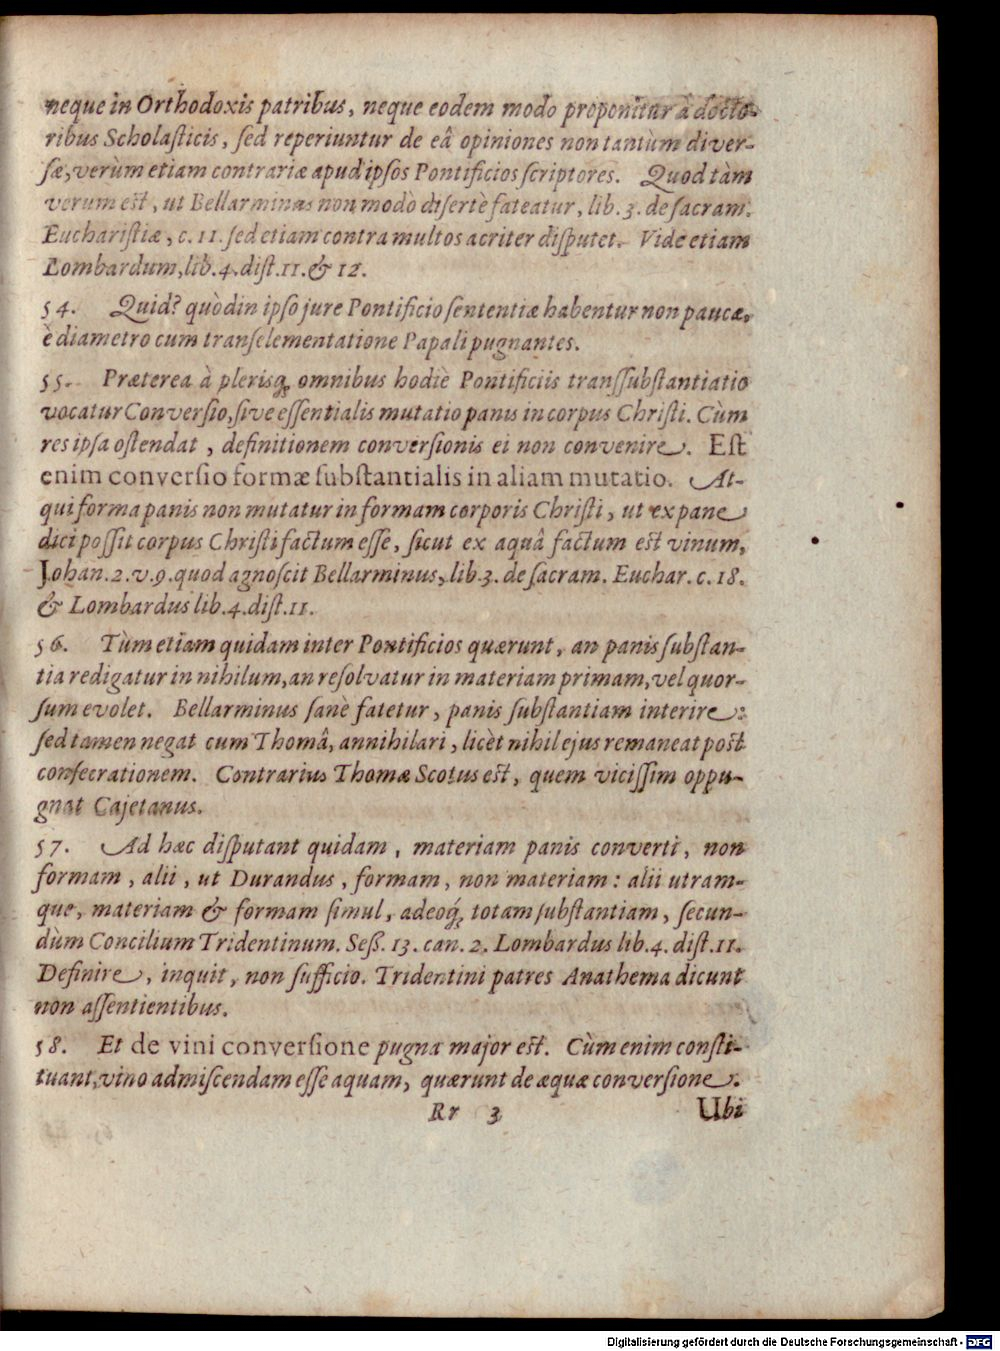 neque in Orthodoxis patribus, neque eodem modo proponitur à docto-
ribus Scholaſticis, ſed reperiuntur de eâ opiniones non tantùm diver-
ſæ, verùm etiam contrariæ apud ipſos Pontificios ſcriptores. Quod tàm
verum eſt, ut Bellarminus non modò diſertè fateatur, lib. 3. de ſacram.
Euchariſtiæ, c. 11. ſed etiam contra multos acriter diſputet. Vide etiam
Lombardum, lib. 4. diſt. 11. & 12.
54. Quid? quòd in ipſo jure Pontificio ſententiæ habentur non paucæ,
è diametro cum tranſelementatione Papali pugnantes.
55. Præterea à pleriſq́; omnibus hodiè Pontificiis transſubſtantiatio
vocatur Converſio, ſive eſſentialis mutatio panis in corpus Chriſti. Cùm
res ipſa oſtendat, definitionem converſionis ei non convenire. Eſt
enim converſio formæ ſubſtantialis in aliam mutatio. At-
qui forma panis non mutatur in formam corporis Chriſti, ut ex pane
dici poſſit corpus Chriſti factum eſſe, ſicut ex aquâ factum eſt vinum,
Johan. 2. v. 9. quod agnoſcit Bellarminus, lib. 3. de ſacram. Euchar. c. 18.
& Lombardus lib. 4. diſt. 11.
56. Tùm etiam quidam inter Pontificios quærunt, an panis ſubſtan-
tia redigatur in nihilum, an reſolvatur in materiam primam, vel quor-
ſum evolet. Bellarminus ſanè fatetur, panis ſubſtantiam interire:
ſed tamen negat cum Thomâ, annihilari, licèt nihil ejus remaneat poſt
conſecrationem. Contrarius Thomæ Scotus eſt, quem viciſſim oppu-
gnat Cajetanus.
57. Ad hæc diſputant quidam, materiam panis converti, non
formam, alii, ut Durandus, formam, non materiam: alii utram-
que, materiam & formam ſimul, adeoq́; totam ſubſtantiam, ſecun-
dùm Concilium Tridentinum. Seſſ. 13. can. 2. Lombardus lib. 4. diſt. 11.
Definire, inquit, non ſufficio. Tridentini patres Anathema dicunt
non aſſentientibus.
58. Et de vini converſione pugna major eſt. Cùm enim conſti-
tuant, vino admiſcendam eſſe aquam, quærunt de æquæ converſione.
Rr 3 Ubi
Digitalisierung gefördert durch die Deutsche Forschungsgemeinschaft - DFG